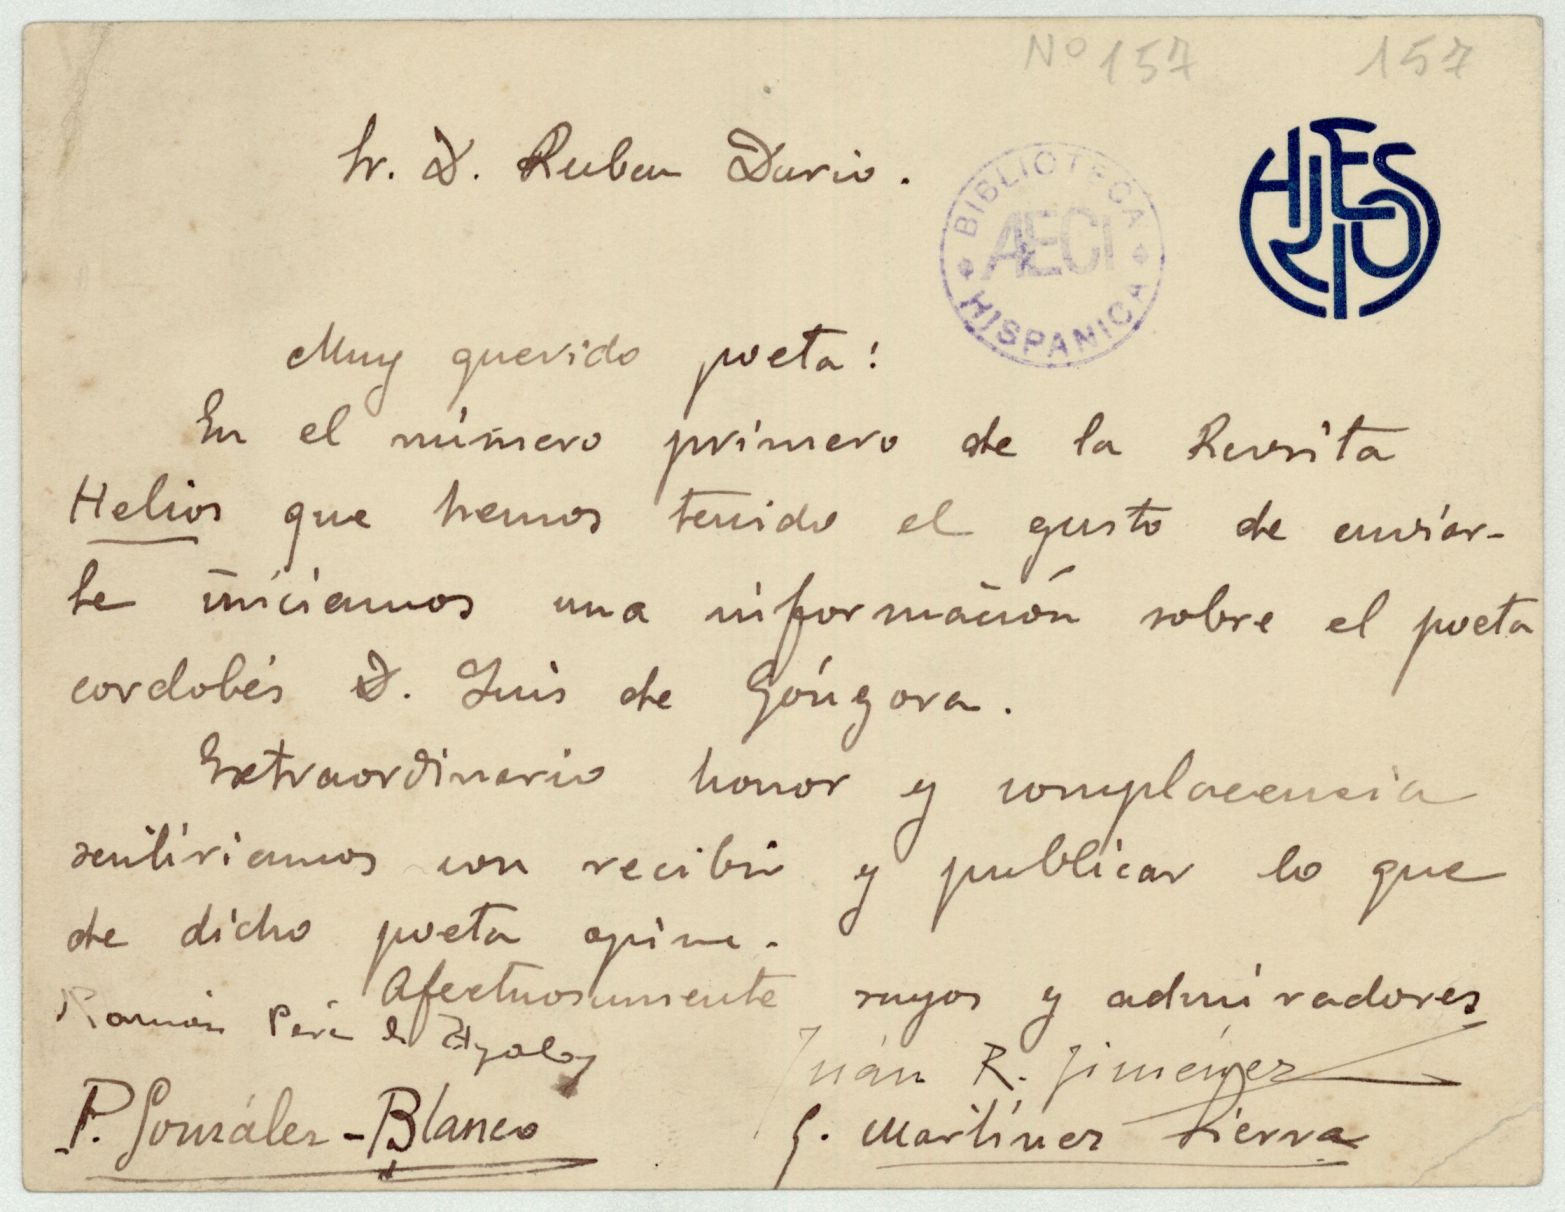 Nº 157 157
Sr. D. Ruben Dario.
HELIOS
BIBLIOTECA AECI HISPANICA
Muy querido poeta:
En el número primero de la Revista
Helios que hemos tenido el gusto de enviar-
le iniciamos una información sobre el poeta
cordobés D. Luis de Góngora.
Extraordinario honor y complacencia
sentiriamos con recibir y publicar lo que
de dicho poeta opine.
Afectuosamente suyos y admiradores
Ramón Pérez de Ayala
Juán R. Jiménez
P. González-Blanco
G. Martínez Sierra